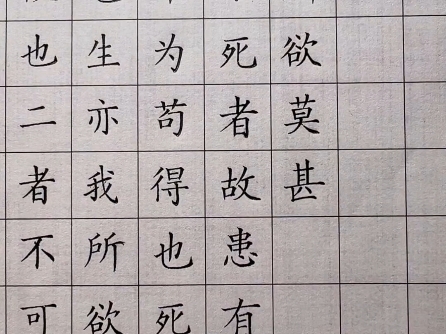 也二者不可
生亦我所欲
为苟得也死
死者故患有
欲莫甚